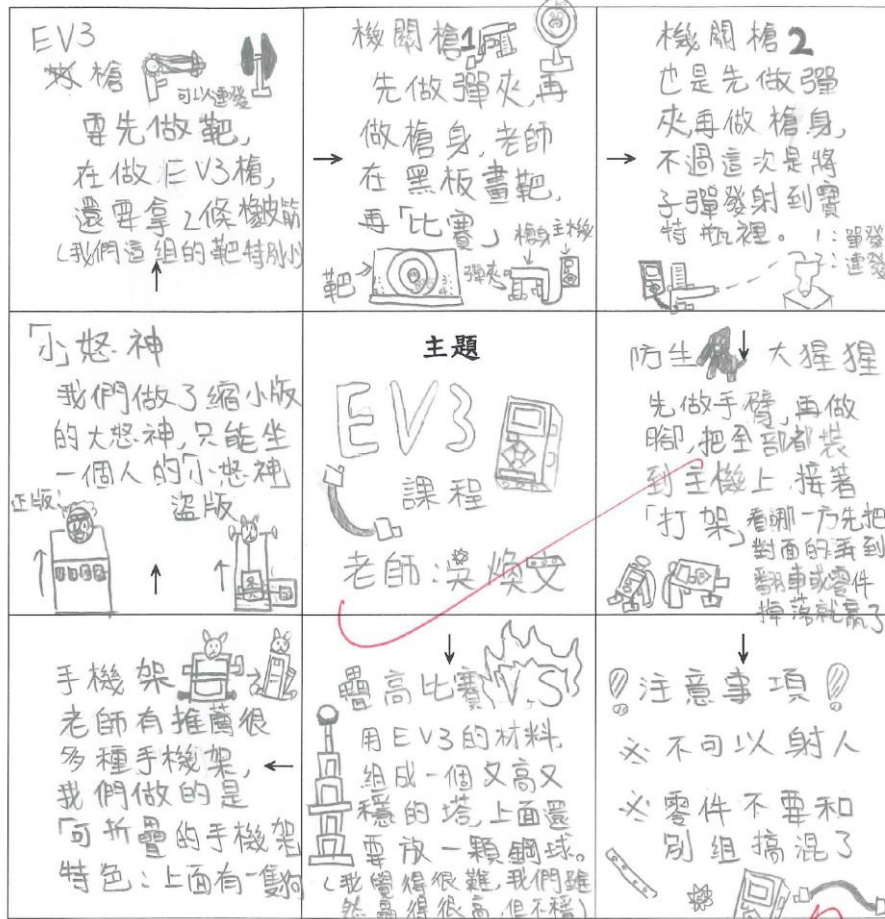 EV3
槍
可以連發
要先做靶,
在做EV3槍,
還要拿2條橡皮筋
(我們這組的靶特別小)
機關槍1
先做彈夾,再
做槍身,老師
在黑板畫靶,
再「比賽」
槍身主機
靶
彈夾
機關槍2
也是先做彈
夾,再做槍身,
不過這次是將
子彈發射到寶
特瓶裡。
1:單發
2:連發
「小怒神
我們做了縮小版
的大怒神,只能坐
一個人的「小怒神」
正版:
盜版
主題
EV3
課程
老師:吳煥文
防生大猩猩
先做手臂,再做
腳,把全部都裝
到主機上,接著
「打架」看哪一方先把
對面的弄到
翻車或零件
掉落就贏了
手機架
老師有推薦很
多種手機架,
我們做的是
「可折疊的手機架
特色:上面有一隻狗
疊高比賽VS
用EV3的材料,
組成一個又高又
穩的塔上面還
要放一顆鋼球。
(我覺得很難,我們雖
然贏得很高,但不穩)
!注意事項!
※不可以射人
※零件不要和
別組搞混了